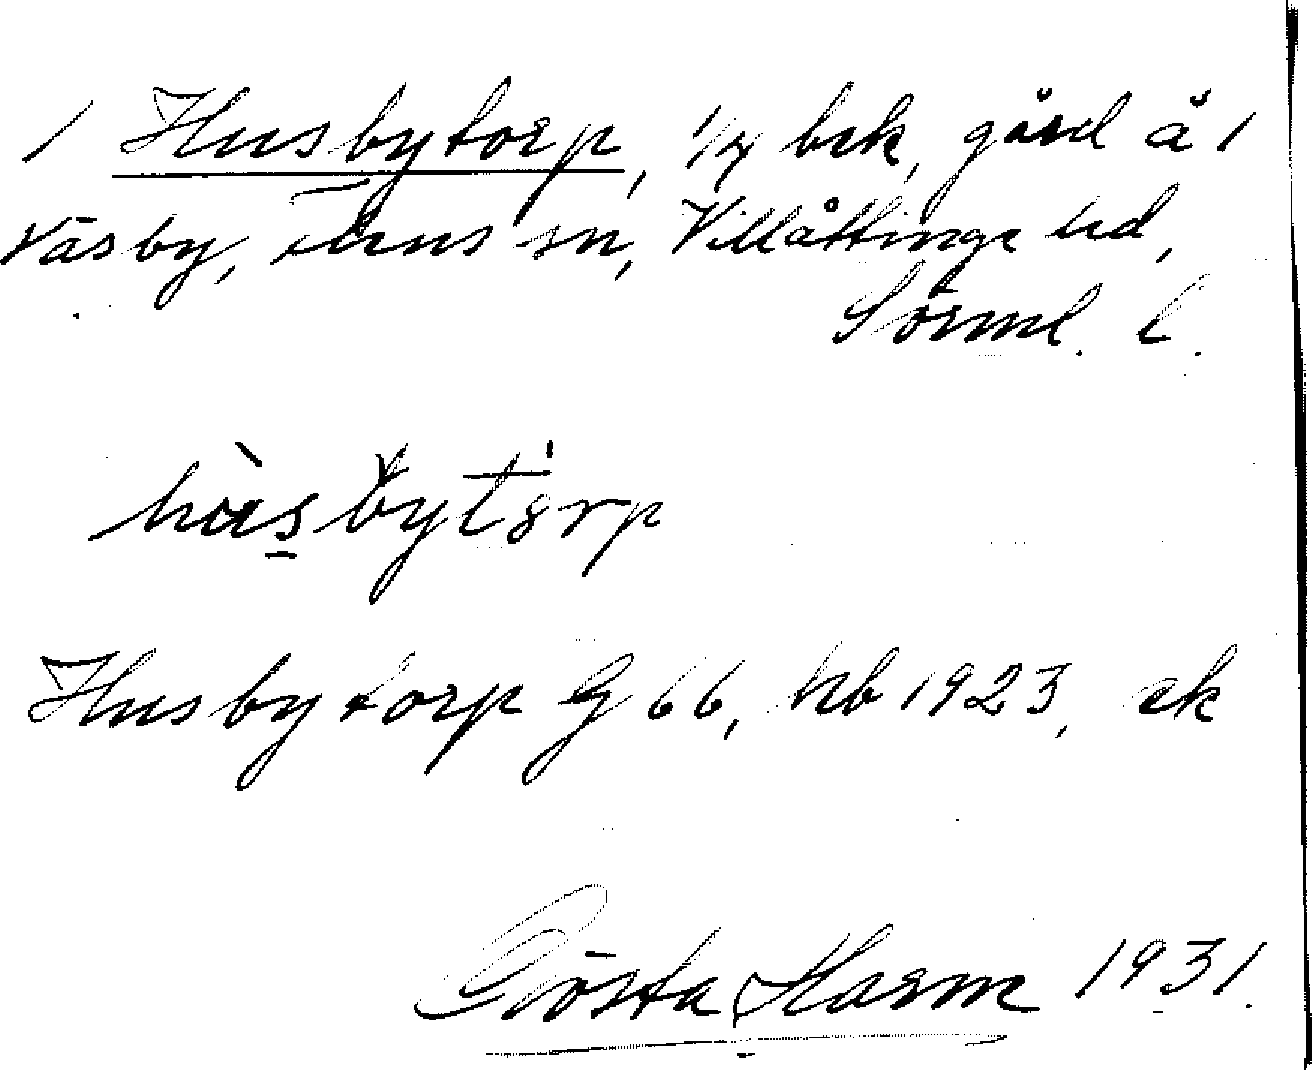 1 Husbytorp, 1/4 brk, gård å 1
Väsby, Flens sn, Villåttinge hd,
Sörml. l.
hùsbytórp
Husbytorp G 66, hb 1923, ek
Gösta Harm 1931.